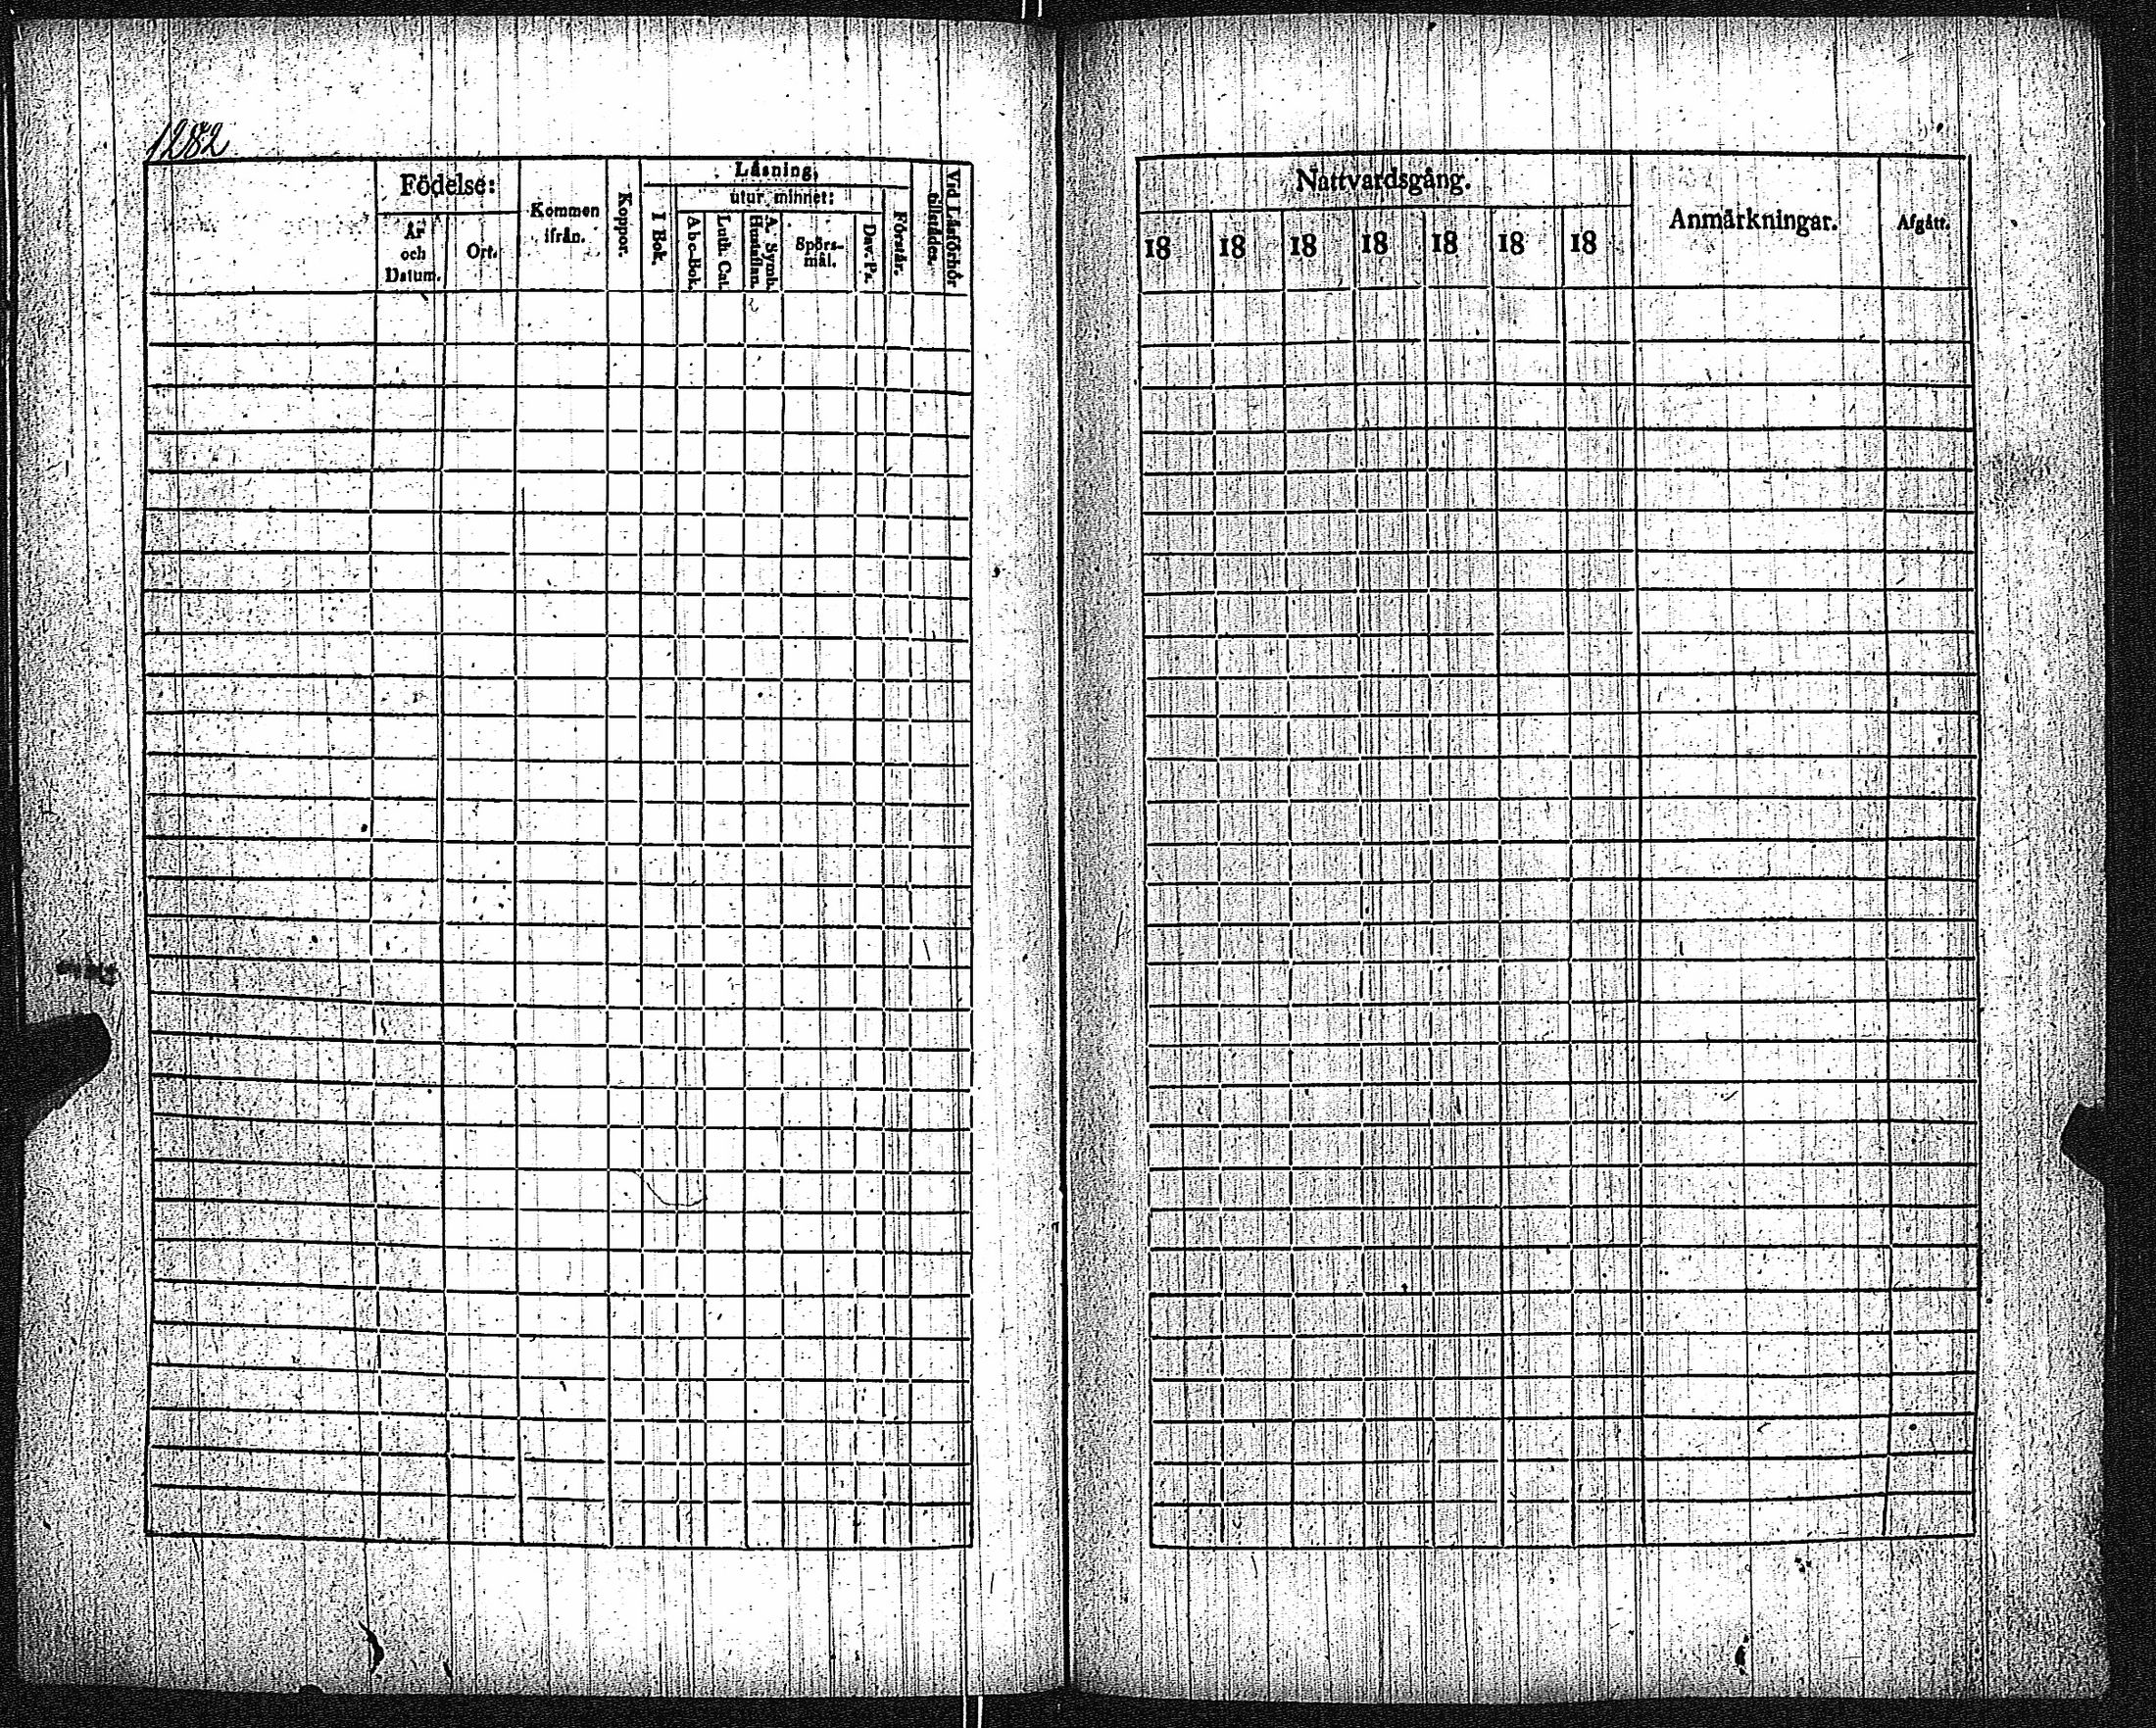 1282
Födelse:
År och Datum.
Ort.
Kommen ifrån.
Koppor.
Läsning,
I Bok.
utur minnet:
Abc-Bok.
Luth. Cat.
A. Symb. Hustaflan.
Spörs-mål.
Dav. Ps.
Förstår.
Vid Läsförhör tilstädes.
Nattvardsgång.
18 18 18 18 18 18 18
Anmärkningar.
Afgått.